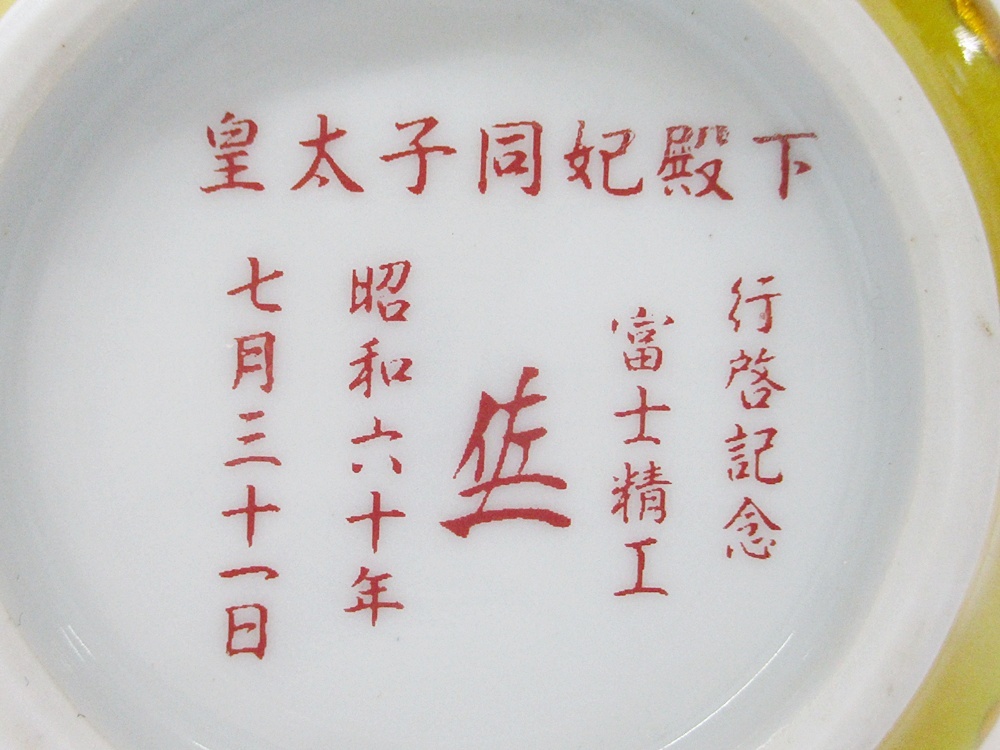 皇太子同妃殿下
行啓記念
富士精工
佐
昭和六十年
七月三十一日